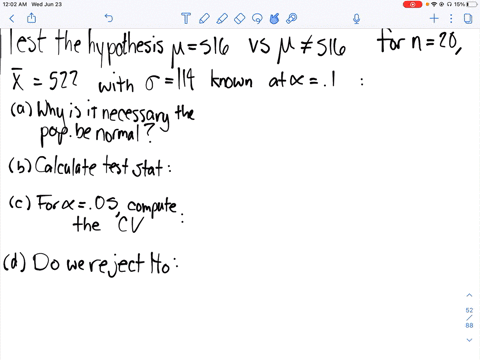 12:02 AM Wed Jun 23
15%
Test the hypothesis μ = 516 vs μ ≠ 516 for n = 20,
x̄ = 522 with σ = 114 known at α = .1 :
(a) Why is it necessary the
pop. be normal?
(b) Calculate test stat:
(c) For α = .05, compute
the CV :
(d) Do we reject Ho:
52
/
68